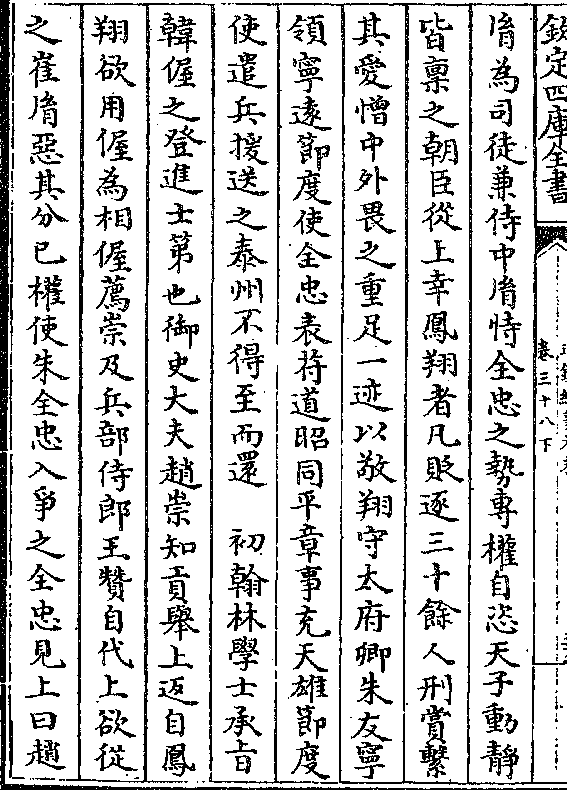 欽定四庫全書
卷三十八下
胤為司徒兼侍中胤恃全忠之勢專權自恣天子動靜
皆稟之朝臣從上幸鳳翔者凡貶逐三十餘人刑賞繫
其愛憎中外畏之重足一迹以敬翔守太府卿朱友寧
領寧遠節度使全忠表苻道昭同平章事充天雄節度
使遣兵援送之秦州不得至而還　初翰林學士承旨
韓偓之登進士第也御史大夫趙崇知貢舉上返自鳳
翔欲用偓為相偓薦崇及兵部侍郎王贊自代上欲從
之崔胤惡其分已權使朱全忠入爭之全忠見上曰趙